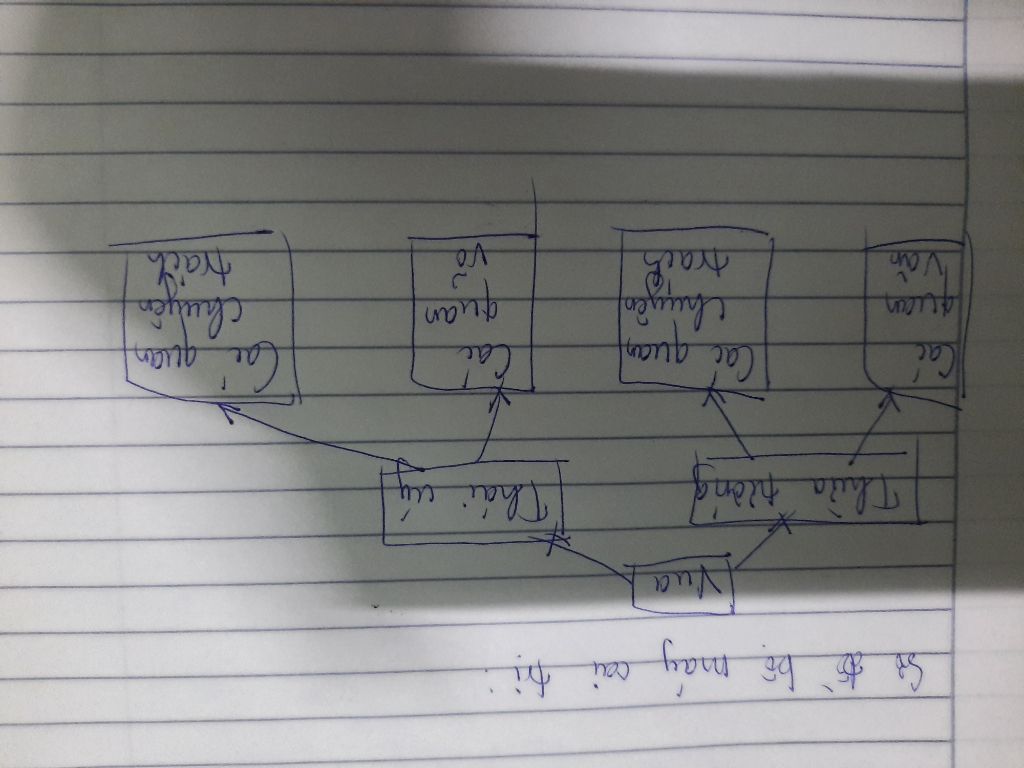 Sơ đồ bộ máy cai trị:
Vua
Thừa tướng
Thái úy
Các
quan
văn
Các quan
chuyên
trách
Các
quan
võ
Các quan
chuyên
trách